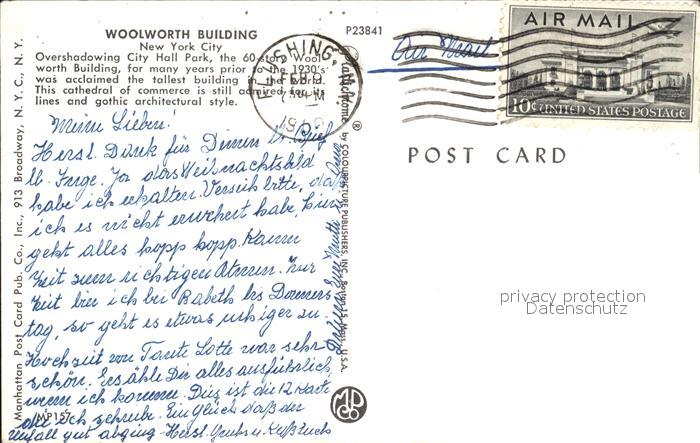 WOOLWORTH BUILDING
New York City
Overshadowing City Hall Park, the 60-story Wool-
worth Building, for many years prior to the 1930's
was acclaimed the tallest building in the
This cathedral of commerce is still admired for its
lines and gothic architectural style.
P23841
Air Mail
FLUSHING, N.Y.
FEB
PM
19
AIR MAIL
10¢ UNITED STATES POSTAGE
POST CARD
Meine Lieben!
Herzl. Dank für Deinen lb. Brief
lb. Inge. Ja das Weihnachtsbild
habe ich erhalten. Verzeih bitte, daß
ich es nicht erwehnt habe, hier
geht alles hopp hopp. Kaum
Zeit zum richtigen Atmen. Zur
Zeit bin ich bei Babeth bis Donners
tag, so geht es etwas ruhiger zu.
Hochzeit von Tante Lotte war sehr
schön. Erzähle Dir alles ausführlich,
wenn ich komme. Dies ist die 12 Karte
die ich schreibe. Ein Glück daß der
Unfall gut abging. Herzl. Grüße u. Küße Euch
Manhattan Post Card Pub. Co., Inc., 913 Broadway, N. Y. C., N. Y.
MP157
by COLOURPICTURE PUBLISHERS, INC., Boston 15, Mass., U.S.A.
privacy protection
Datenschutz